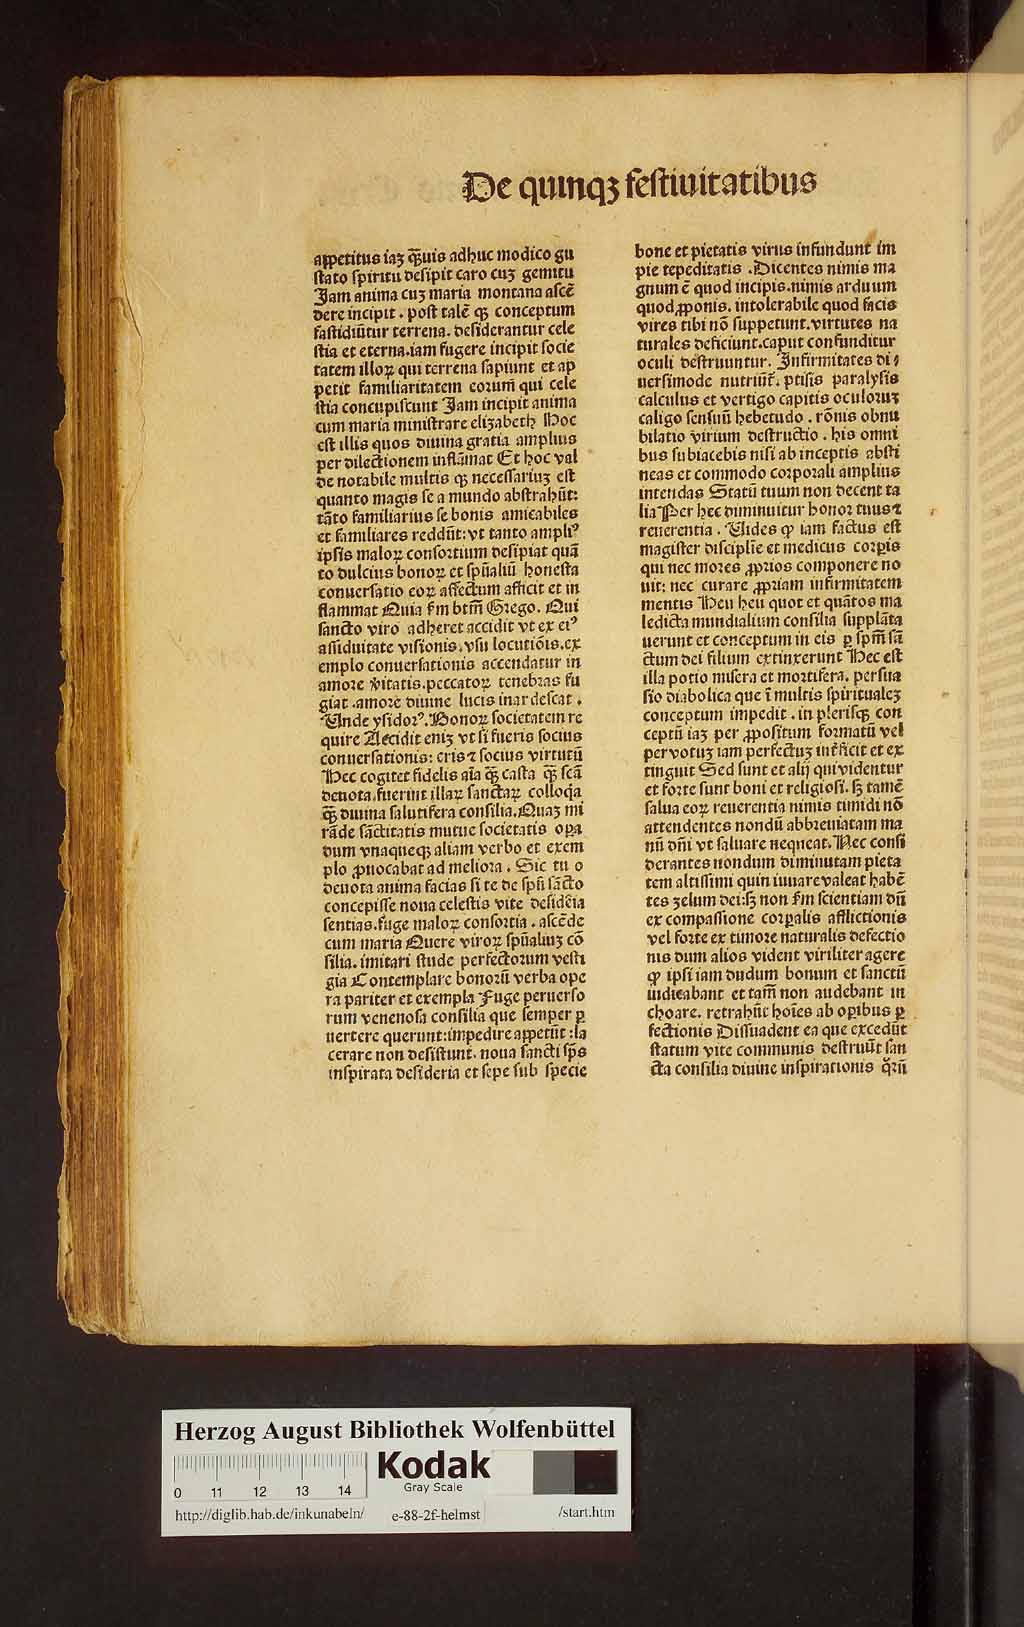 De quinqȝ festiuitatibus
appetitus iaȝ q̄uis adhuc modico gu
stato spiritu desipit caro cuȝ gemitu
Jam anima cuȝ maria montana ascē
dere incipit . post talē qȝ conceptum
fastidiūtur terrena. desiderantur cele
stia et eterna.iam fugere incipit socie
tatem illoꝝ qui terrena sapiunt et ap
petit familiaritatem eorum̄ qui cele
stia concupiscunt Jam incipit anima
cum maria ministrare elizabeth Hoc
est illis quos diuina gratia amplius
per dilectionem inflāmat Et hoc val
de notabile multis qȝ necessariuȝ est
quanto magis se a mundo abstrahūt:
tāto familiarius se bonis amicabiles
et familiares reddūt: vt tanto ampliꝰ
ipsis maloꝝ consortium desipiat quā
to dulcius bonoꝝ et spūaliū honesta
conuersatio eoꝝ affectum afficit et in
flammat Quia ẜm btm̄ Grego. Qui
sancto viro adheret accidit vt ex eiꝰ
assiduitate visionis. vsu locutiōis. ex
emplo conuersationis accendatur in
amore v̄itatis. peccatoꝝ tenebras fu
giat . amore diuine lucis inardescat .
Unde ysidorꝰ. Bonoꝝ societatem re
quire Accidit eniȝ vt si fueris socius
conuersationis: eris ⁊ socius virtutū
Hec cogitet fidelis aīa q̄ȝ casta q̄ȝ scā
deuota. fuerint illaꝝ sanctaꝝ colloq̄a
q̄ȝ diuina salutifera consilia. Quaȝ mi
rāde sāctitatis mutue societatis oꝑa
dum vnaqueqȝ aliam verbo et exem
plo ꝓuocabat ad meliora . Sic tu o
deuota anima facias si te de spū sācto
concepisse noua celestis vite desidēia
sentias. fuge maloꝝ consortia . ascēde
cum maria Quere viroꝝ spūaliuȝ cō
silia. imitari stude perfectorum vesti
gia Contemplare bonorū verba ope
ra pariter et exempla Fuge peruerso
rum venenosa consilia que semper ꝑ
uertere querunt: impedire appetūt : la
cerare non desistunt. noua sancti sp̄s
inspirata desideria et sepe sub specie
bone et pietatis virus infundunt im
pie tepeditatis . Dicentes nimis ma
gnum ē quod incipis. nimis arduum
quod ꝓponis. intolerabile quod facis
vires tibi nō suppetunt. virtutes na
turales deficiunt. caput confunditur
oculi destruuntur. Infirmitates di⸗
uersimode nutriūt᷑. ptisis paralysis
calculus et vertigo capitis oculoruȝ
caligo sensuū hebetudo . rōnis obnu
bilatio virium destructio . his omni
bus subiacebis nisi ab inceptis absti
neas et commodo corporali amplius
intendas Statū tuum non decent ta
lia Per hec diminuitur honor tuus ⁊
reuerentia . Uides ꝙ iam factus est
magister discipline et medicus corꝑis
qui nec mores ꝓprios componere no
uit: nec curare ꝓpriam infirmitatem
mentis Heu heu quot et quātos ma
ledicta mundialium consilia supplāta
uerunt et conceptum in eis ꝑ spm̄ sā
ctum dei filium extinxerunt Hec est
illa potio misera et mortifera. persua
sio diabolica que ī multis spiritualeȝ
conceptum impedit . in plerisqȝ con
ceptū iaȝ per ꝓpositum formatū vel
per votuȝ iam perfectuȝ int̄ficit et ex
tinguit Sed sunt et alij qui videntur
et forte sunt boni et religiosi. sȝ tamē
salua eoꝝ reuerentia nimis timidi nō
attendentes nondū abbreuiatam ma
nū dn̄i vt saluare nequeat. Nec consi
derantes nondum diminutam pieta
tem altissimi quin iuuare valeat habē
tes zelum dei: sȝ non ẜm scientiam dū
ex compassione corꝑalis afflictionis
vel forte ex timore naturalis defectio
nis dum alios vident viriliter agere
ꝙ ipsi iam dudum bonum et sanctū
iudicabant et tam̄ non audebant in
choare. retrahūt hoīes ab oꝑibus ꝑ
fectionis Dissuadent ea que excedūt
statum vite communis destruūt san
cta consilia diuine inspirationis q̄rū
Herzog August Bibliothek Wolfenbüttel
0 11 12 13 14
Kodak
Gray Scale
http://diglib.hab.de/inkunabeln/ e-88-2f-helmst /start.htm